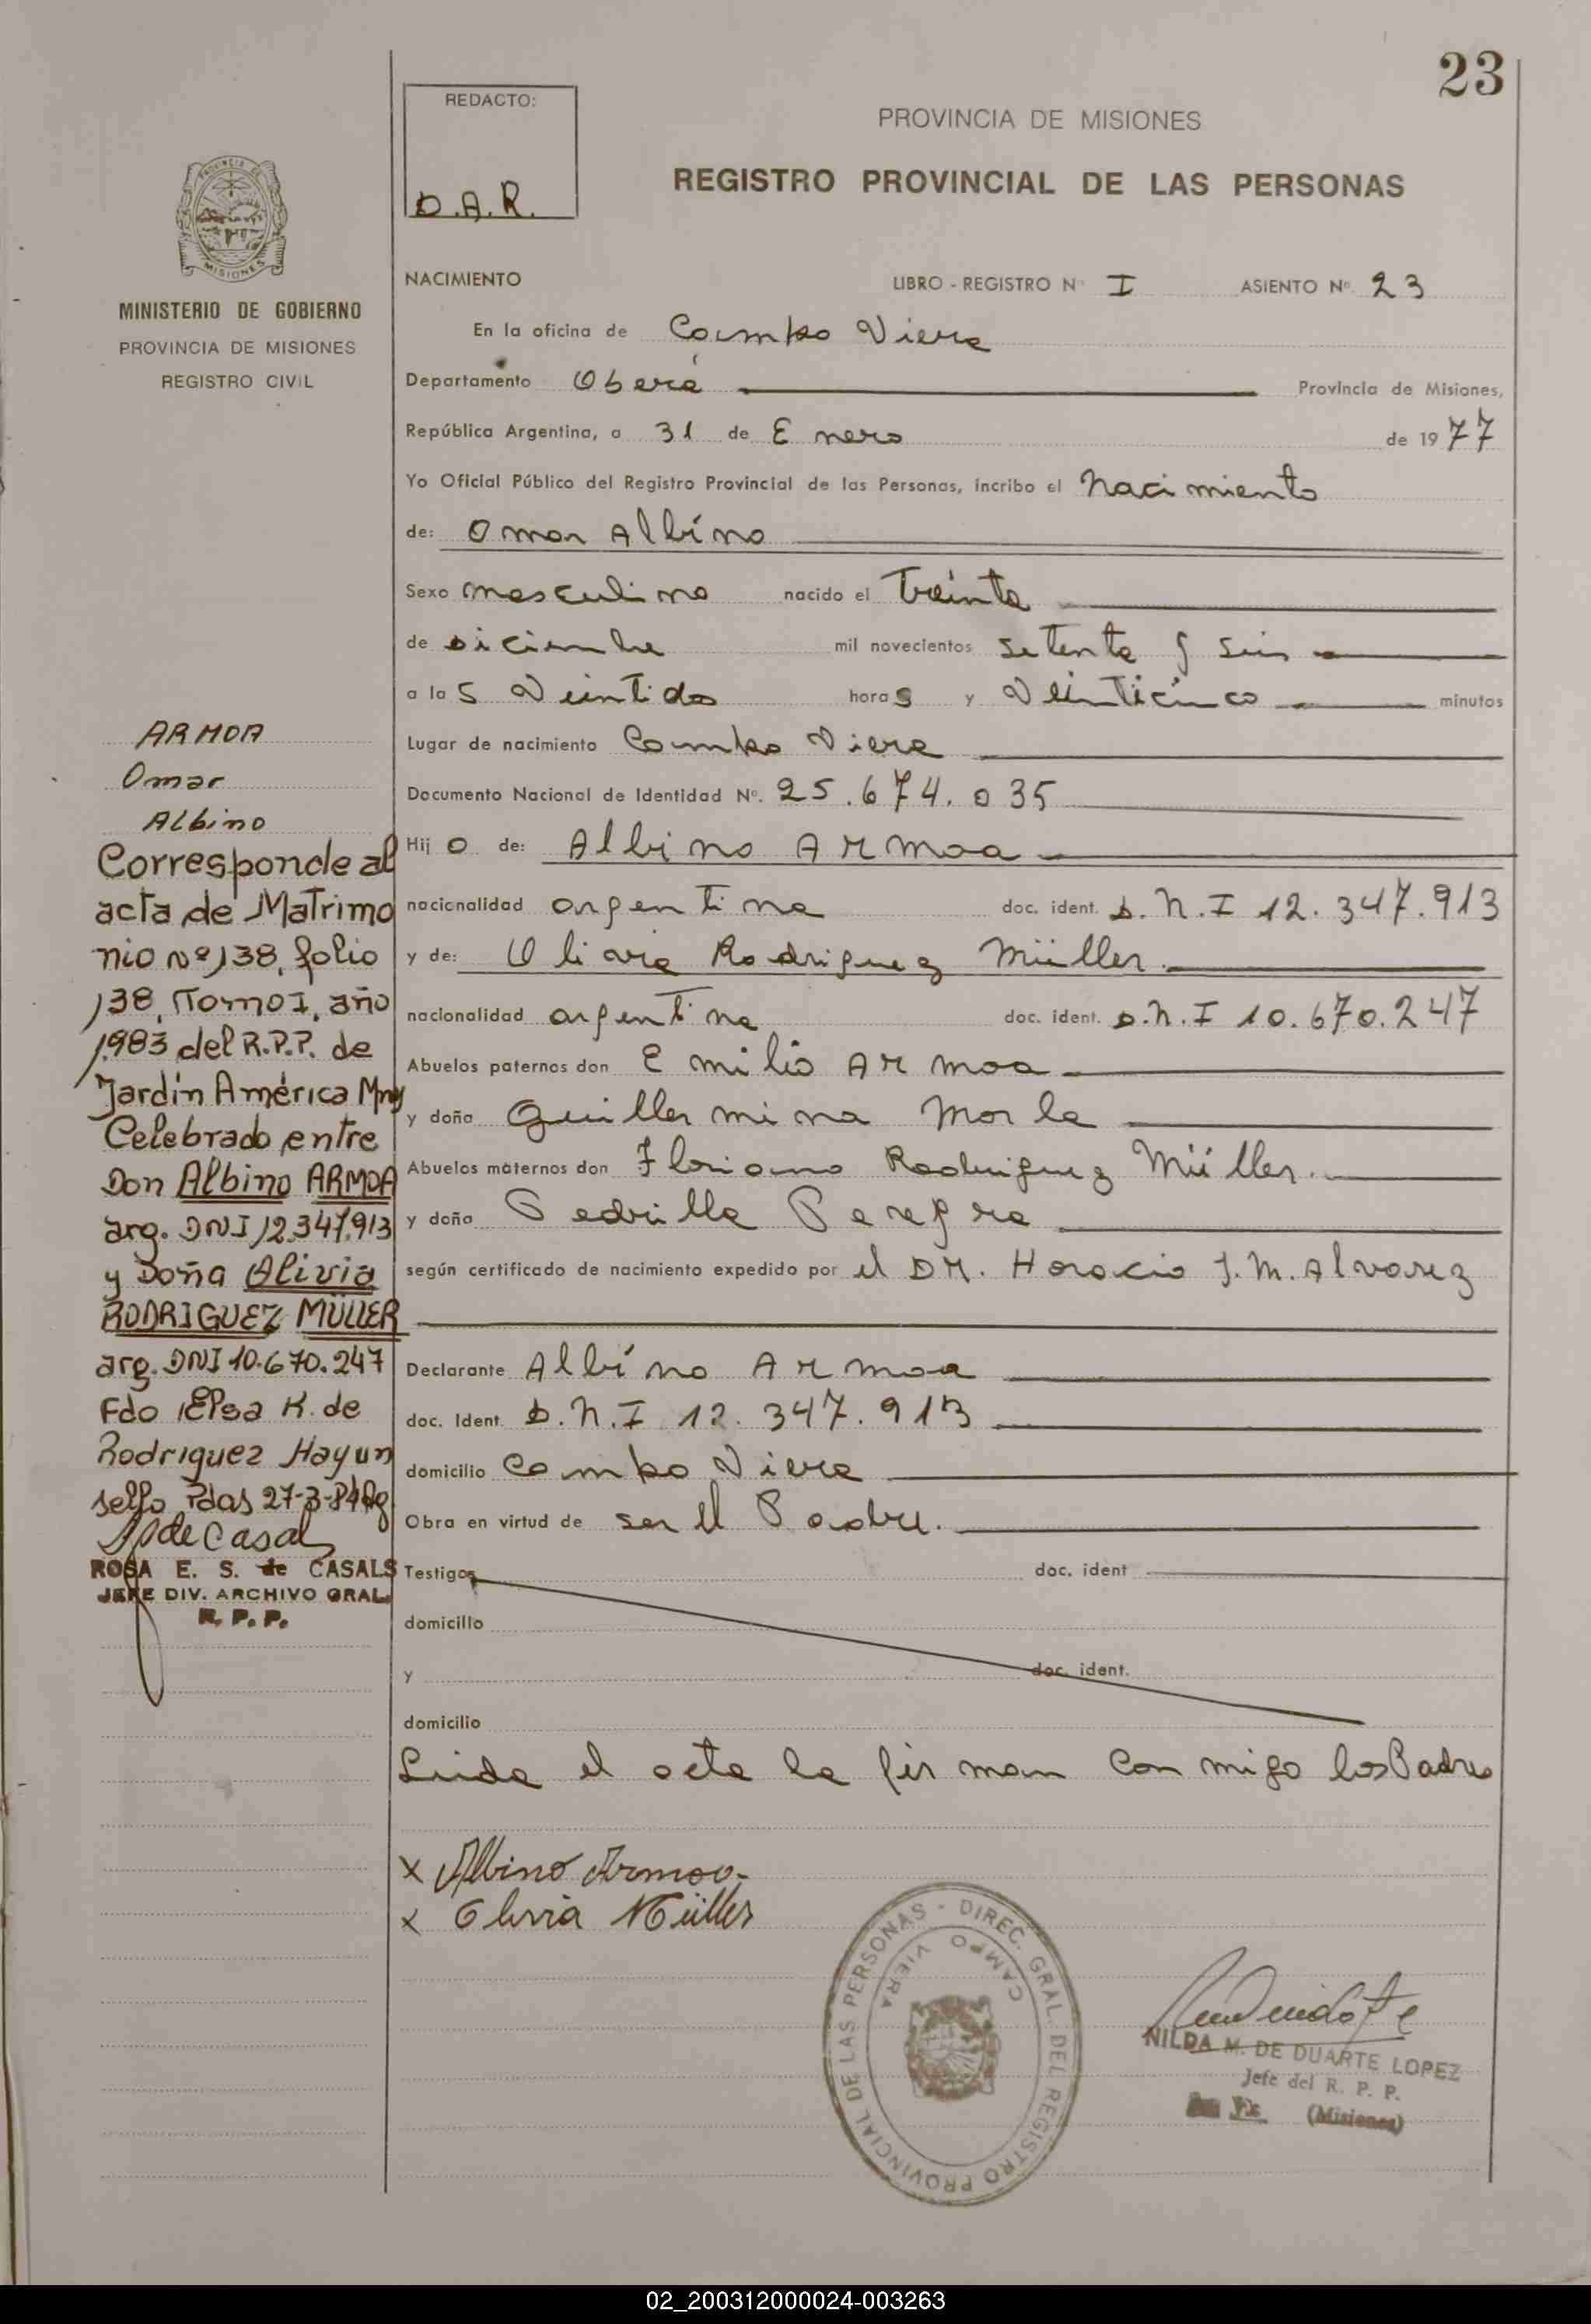 23
REDACTO:
D.A.R.
PROVINCIA DE MISIONES
REGISTRO PROVINCIAL DE LAS PERSONAS
MISIONES
MINISTERIO DE GOBIERNO
PROVINCIA DE MISIONES
REGISTRO CIVIL
NACIMIENTO LIBRO - REGISTRO Nº I ASIENTO Nº 23
En la oficina de Campo Viera
Departamento Oberá Provincia de Misiones,
República Argentina, a 31 de Enero de 1977
Yo Oficial Público del Registro Provincial de las Personas, incribo el Nacimiento
de: Omar Albino
Sexo masculino nacido el Treinta
de Diciembre mil novecientos setenta y seis
a las Veintidos horas y Veinticinco minutos
Lugar de nacimiento Campo Viera
Documento Nacional de Identidad Nº. 25.674.035
Hijo de: Albino Armoa
nacionalidad argentina doc. ident. D.N.I 12.347.913
y de: Olivia Rodriguez Müller.
nacionalidad argentina doc. ident. D.N.I 10.670.247
Abuelos paternos don Emilio Armoa
y doña Guillermina Morla
Abuelos maternos don Floriano Rodriguez Müller.
y doña Pedrilla Pereyra
según certificado de nacimiento expedido por el DR. Horacio J.M. Alvarez
Declarante Albino Armoa
doc. Ident. D.N.I 12.347.913
domicilio Campo Viera
Obra en virtud de ser el Padre.
Testigos doc. ident
domicilio
y doc. ident.
domicilio
Leida el acta la firman con migo los Padres
x Albino Armoa.
x Olivia Müller
ARMOA
Omar
Albino
Corresponde al
acta de Matrimo
nio Nº 138, folio
138, Tomo I, año
1.983 del R.P.P. de
Jardín América Mnes
Celebrado entre
Don Albino ARMOA
arg. DNI 12.347.913
y Doña Olivia
RODRIGUEZ MÜLLER
arg. DNI 10.670.247
Fdo Elsa K. de
Rodriguez Hay un
sello Pdas 27-3-84
de Casals
ROSA E. S. de CASALS
JEFE DIV. ARCHIVO GRAL.
R. P. P.
DIREC. GRAL. DEL REGISTRO PROVINCIAL DE LAS PERSONAS -
CAMPO VIERA
NILDA M. DE DUARTE LOPEZ
Jefe del R. P. P.
(Misiones)
02_200312000024-003263